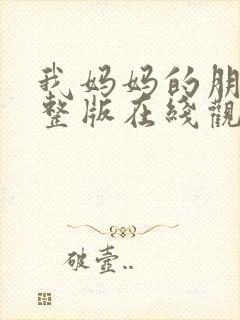 我妈妈的朋
整版在线觀
破壺..